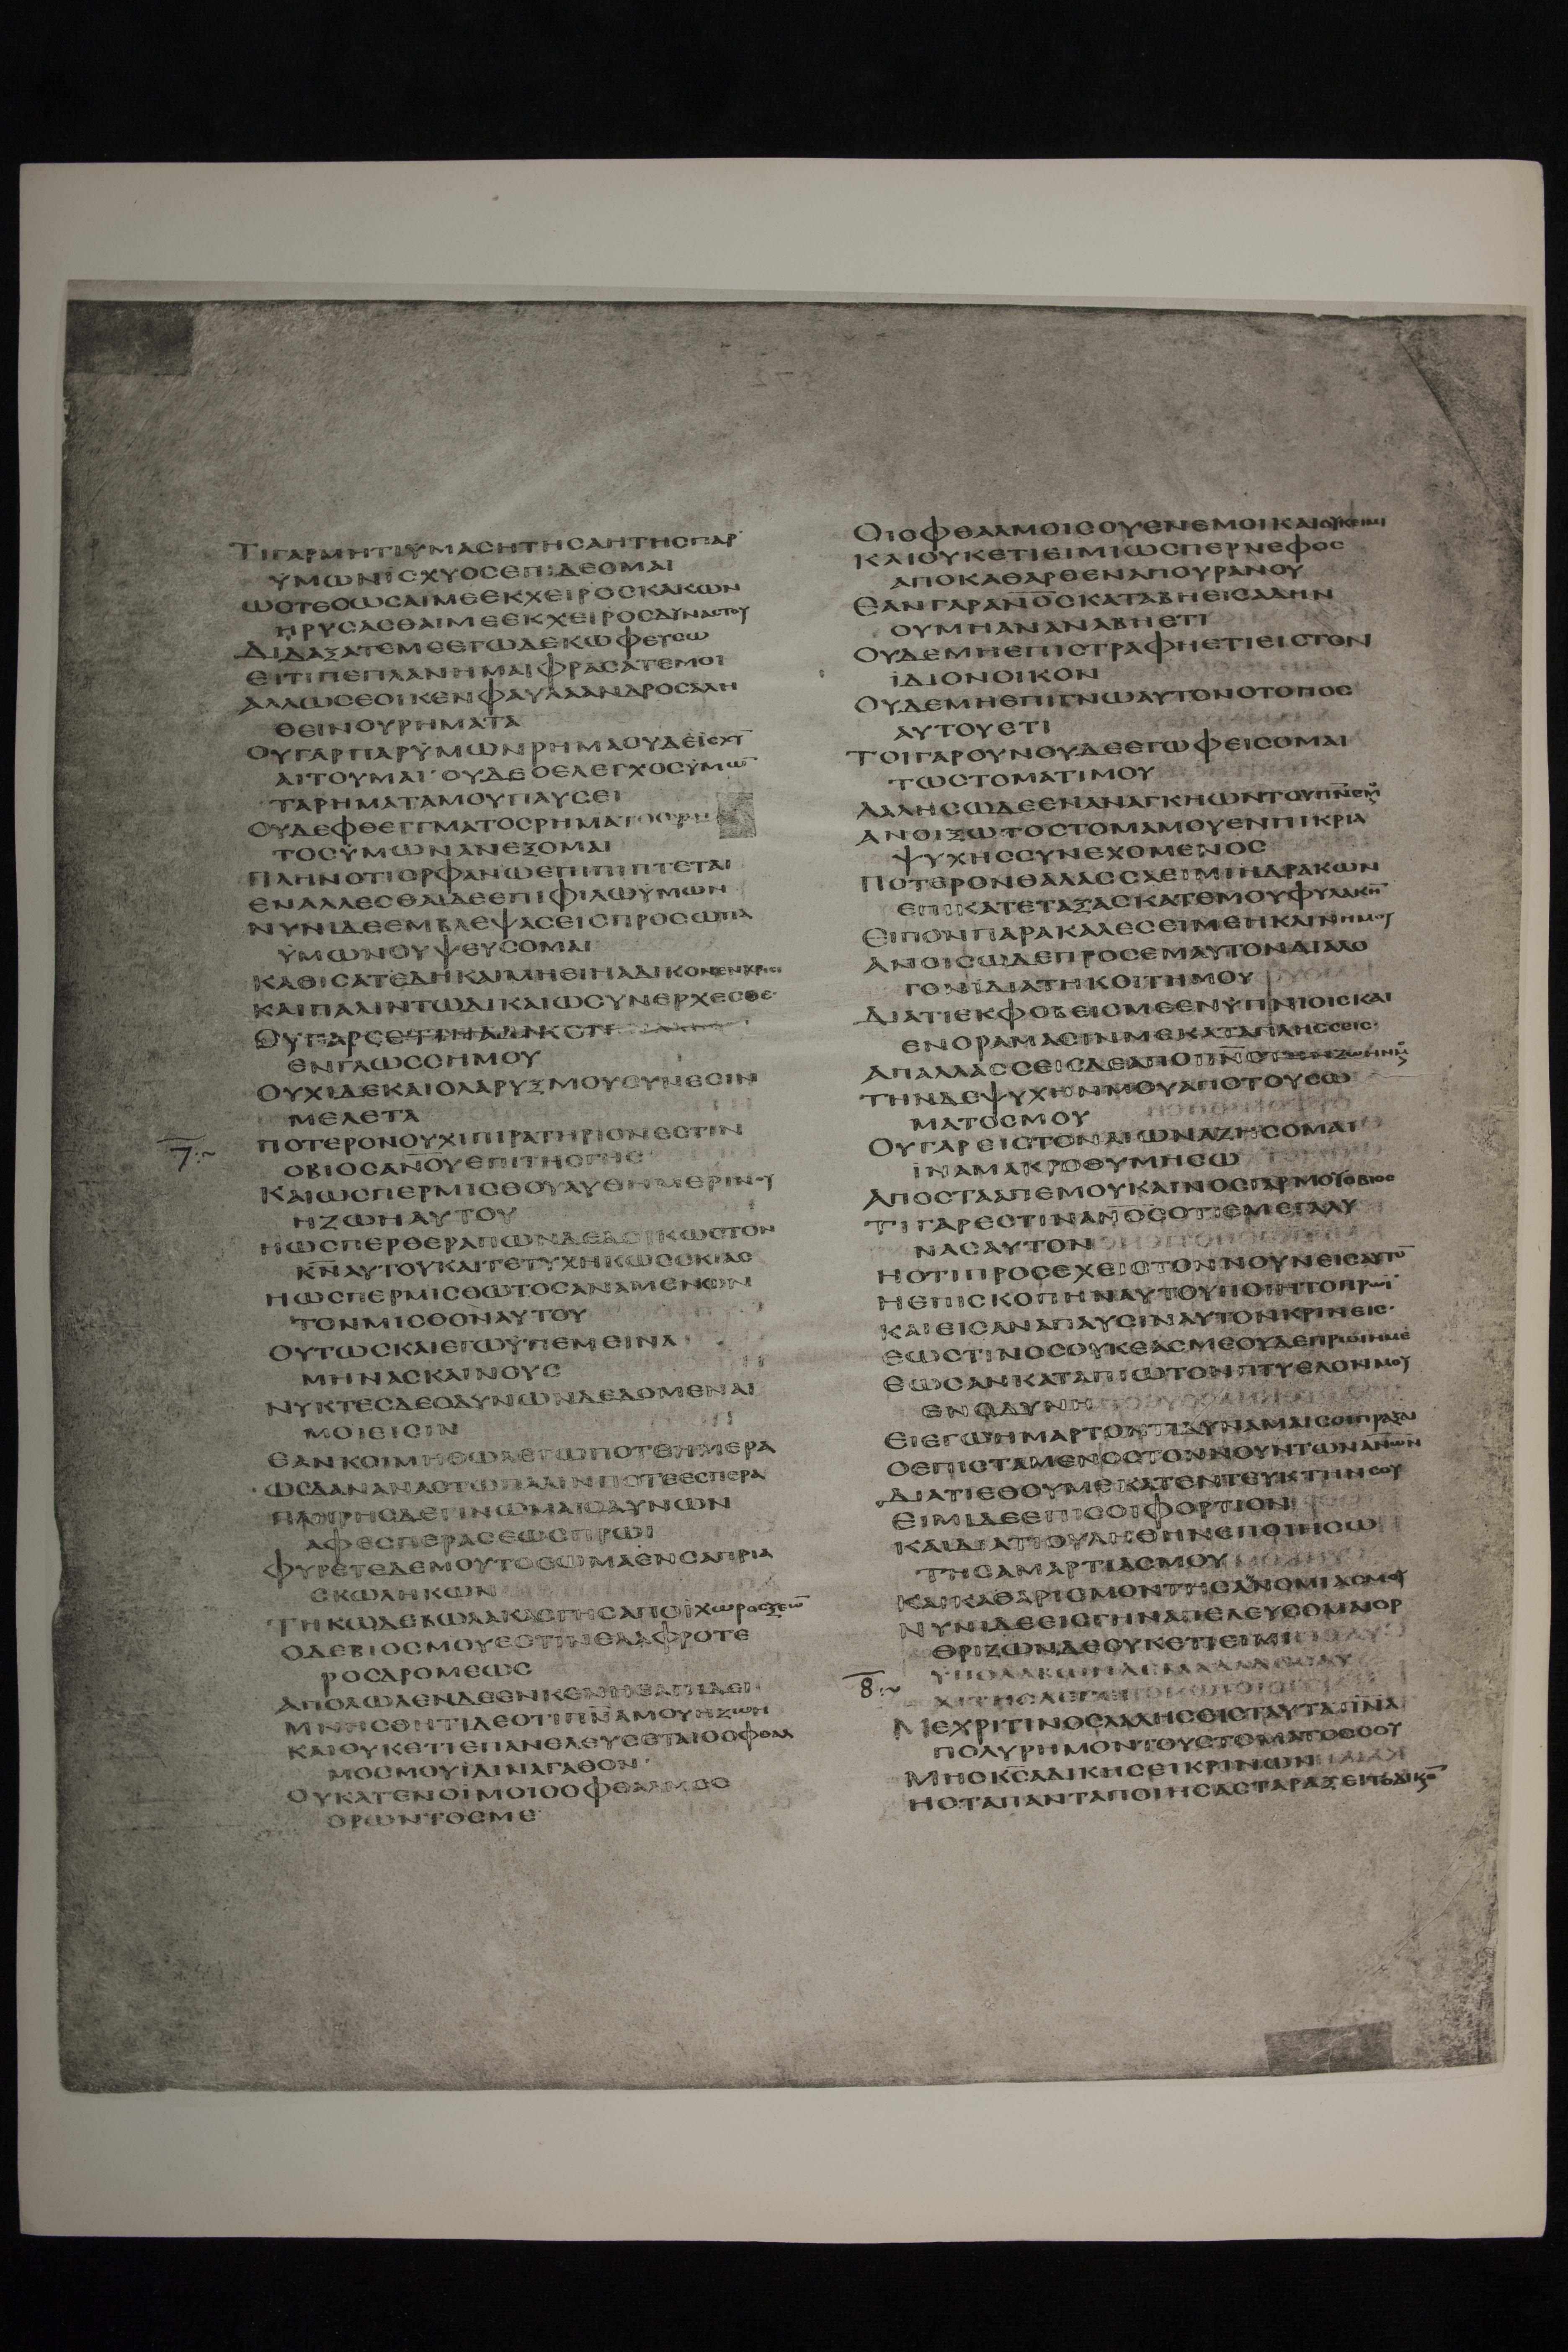 ΤΙΓΑΡΜΗΤΙΫΜΑϹΗΤΗϹΑΗΤΗϹΠΑΡ
ΫΜΩΝΙϹΧΥΟϹΕΠΙΔΕΟΜΑΙ
ΩϹΤΕϹΩϹΑΙΜΕΕΚΧΕΙΡΟϹΚΑΚΩΝ
ΗΡΥϹΑϹΘΑΙΜΕΕΚΧΕΙΡΟϹΔΥΝΑϹΤΟΥ
ΔΙΔΑΞΑΤΕΜΕΕΓΩΔΕΚΩΦΕΥϹΩ
ΕΙΤΙΠΕΠΛΑΝΗΜΑΙΦΡΑϹΑΤΕΜΟΙ
ΑΛΛΩϹΕΟΙΚΕΝΦΑΥΛΑΑΝΔΡΟϹΑΛΗ
ΘΕΙΝΟΥΡΗΜΑΤΑ
ΟΥΓΑΡΠΑΡΫΜΩΝΡΗΜΑΟΥΔΕΪϹΧΥ̅
ΑΙΤΟΥΜΑΙ·ΟΥΔΕΟΕΛΕΓΧΟϹΫΜΩ̅
ΤΑΡΗΜΑΤΑΜΟΥΠΑΥϹΕΙ
ΟΥΔΕΦΘΕΓΓΜΑΤΟϹΡΗΜΑ
ΤΟϹΫΜΩΝΑΝΕΞΟΜΑΙ
ΠΛΗΝΟΤΙΟΡΦΑΝΩΕΠΙΠΙΠΤΕΤΑΙ
ΕΝΑΛΛΕϹΘΑΙΔΕΕΠΙΦΙΛΩΫΜΩΝ
ΝΥΝΙΔΕΕΜΒΛΕΨΑϹΕΙϹΠΡΟϹΩΠΑ
ΫΜΩΝΟΥΨΕΥϹΟΜΑΙ
ΚΑΘΙϹΑΤΕΔΗΚΑΙΜΗΕΙΗΑΔΙΚΟΝΕΝΚΡΙϹΙ
ΚΑΙΠΑΛΙΝΤΩΔΙΚΑΙΩϹΥΝΕΡΧΕϹΘΕ·
ΟΥΓΑΡ
ΕΝΓΛΩϹϹΗΜΟΥ
ΟΥΧΙΔΕΚΑΙΟΛΑΡΥΞΜΟΥϹΥΝΕϹΙΝ
ΜΕΛΕΤΑ
7:~ ΠΟΤΕΡΟΝΟΥΧΙΠΙΡΑΤΗΡΙΟΝΕϹΤΙΝ
ΟΒΙΟϹΑΝ̅Ο̅Υ̅ΕΠΙΤΗϹΓΗϹ
ΚΑΙΩϹΠΕΡΜΙϹΘΟΥΑΥΘΗΜΕΡΙΝΟΥ
ΗΖΩΗΑΥΤΟΥ
ΗΩϹΠΕΡΘΕΡΑΠΩΝΔΕΔΟΙΚΩϹΤΟΝ
Κ̅Ν̅ΑΥΤΟΥΚΑΙΤΕΤΥΧΗΚΩϹϹΚΙΑϹ
ΗΩϹΠΕΡΜΙϹΘΩΤΟϹΑΝΑΜΕΝΩΝ
ΤΟΝΜΙϹΘΟΝΑΥΤΟΥ
ΟΥΤΩϹΚΑΙΕΓΩΫΠΕΜΕΙΝΑ
ΜΗΝΑϹΚΑΙΝΟΥϹ
ΝΥΚΤΕϹΔΕΟΔΥΝΩΝΔΕΔΟΜΕΝΑΙ
ΜΟΙΕΙϹΙΝ
ΕΑΝΚΟΙΜΗΘΩΛΕΓΩΠΟΤΕΗΜΕΡΑ
ΩϹΔΑΝΑΝΑϹΤΩΠΑΛΙΝΠΟΤΕΕϹΠΕΡΑ
ΠΛΗΡΗϹΔΕΓΙΝΩΜΑΙΟΔΥΝΩΝ
ΑΦΕϹΠΕΡΑϹΕΩϹΠΡΩΙ
ΦΥΡΕΤΕΔΕΜΟΥΤΟϹΩΜΑΕΝϹΑΠΡΙΑ
ϹΚΩΛΗΚΩΝ
ΤΗΚΩΔΕΒΩΛΑΚΑϹΓΗϹΑΠΟΪΧΩΡΟϹΞΕΩ̅
ΟΔΕΒΙΟϹΜΟΥΕϹΤΙΝΕΛΑΦΡΟΤΕ
ΡΟϹΔΡΟΜΕΩϹ
ΑΠΟΛΩΛΕΝΔΕΕΝΚΕΝΗΕΛΠΙΔΕΙ
ΜΝΗϹΘΗΤΙΔΕΟΤΙΠ̅Ν̅Α̅ΜΟΥΗΖΩΗ
ΚΑΙΟΥΚΕΤΙΕΠΑΝΕΛΕΥϹΕΤΑΙΟΟΦΘΑΛ
ΜΟϹΜΟΥΪΔΙΝΑΓΑΘΟΝ·
ΟΥΚΑΤΕΝΟΪΜΟΙΟΟΦΘΑΛΜΟϹ
ΟΡΩΝΤΟϹΜΕ
ΟΙΟΦΘΑΛΜΟΙϹΟΥΕΝΕΜΟΙΚΑΙΟΥΚΕΙΜΙ
ΚΑΙΟΥΚΕΤΙΕΙΜΙΩϹΠΕΡΝΕΦΟϹ
ΑΠΟΚΑΘΑΡΘΕΝΑΠΟΥΡΑΝΟΥ
ΕΑΝΓΑΡΑΝ̅Ο̅Ϲ̅ΚΑΤΑΒΗΕΙϹΑΔΗΝ
ΟΥΜΗΑΝΑΝΑΒΗΕΤΙ
ΟΥΔΕΜΗΕΠΙϹΤΡΑΦΗΕΤΙΕΙϹΤΟΝ
ΪΔΙΟΝΟΙΚΟΝ
ΟΥΔΕΜΗΕΠΙΓΝΩΑΥΤΟΝΟΤΟΠΟϹ
ΑΥΤΟΥΕΤΙ
ΤΟΙΓΑΡΟΥΝΟΥΔΕΕΓΩΦΕΙϹΟΜΑΙ
ΤΩϹΤΟΜΑΤΙΜΟΥ
ΛΑΛΗϹΩΔΕΕΝΑΝΑΓΚΗΩΝΤΟΥΠ̅Ν̅Ϲ̅Μ
ΑΝΟΙΞΩΤΟϹΤΟΜΑΜΟΥΕΝΠΙΚΡΙΑ
ΨΥΧΗϹϹΥΝΕΧΟΜΕΝΟϹ
ΠΟΤΕΡΟΝΘΑΛΑϹϹΑΕΙΜΙΗΔΡΑΚΩΝ
ΕΠΙΚΑΤΕΤΑΞΑϹΚΑΤΕΜΟΥΦΥΛΑΚΗ̅
ΕΙΠΟΝΠΑΡΑΚΑΛΕϹΕΙΜΕΗΚΛΙΝΗΜΟΥ
ΑΝΟΙϹΩΔΕΠΡΟϹΕΜΑΥΤΟΝΔΙΑΛΟ
ΓΟΝΪΔΙΑΤΗΚΟΙΤΗΜΟΥ
ΔΙΑΤΙΕΚΦΟΒΕΙϹΜΕΕΝΫΠΝΙΟΙϹΚΑΙ
ΕΝΟΡΑΜΑϹΙΝΜΕΚΑΤΑΠΛΗϹϹΕΙϹ·
ΑΠΑΛΛΑϹϹΕΙϹΔΕΑΠΟΠ̅Ν̅Ϲ̅
ΤΗΝΔΕΨΥΧΗΝΜΟΥΑΠΟΤΟΥϹΩ
ΜΑΤΟϹΜΟΥ
ΟΥΓΑΡΕΙϹΤΟΝΑΙΩΝΑΖΗϹΟΜΑΙ
ΪΝΑΜΑΚΡΟΘΥΜΗϹΩ
ΑΠΟϹΤΑΑΠΕΜΟΥΚΑΙΝΟϹΓΑΡΜΟΥΟΒΙΟϹ
ΤΙΓΑΡΕϹΤΙΝΑΝ̅Ο̅Ϲ̅ΟΤΙΕΜΕΓΑΛΥ
ΝΑϹΑΥΤΟΝ
ΗΟΤΙΠΡΟϹΕΧΕΙϹΤΟΝΝΟΥΝΕΙϹΑΥΤΟ̅
ΗΕΠΙϹΚΟΠΗΝΑΥΤΟΥΠΟΙΗΤΟΠΡΩΙ
ΚΑΙΕΙϹΑΝΑΠΑΥϹΙΝΑΥΤΟΝΚΡΙΝΕΙϹ·
ΕΩϹΤΙΝΟϹΟΥΚΕΑϹΜΕΟΥΔΕΠΡΟΪΗΜΕ
ΕΩϹΑΝΚΑΤΑΠΙΩΤΟΝΠΤΥΕΛΟΝΜΟΥ
ΕΝΟΔΥΝΗ
ΕΙΕΓΩΗΜΑΡΤΟΝΤΙΔΥΝΑΜΑΙϹΟΙΠΡΑΞΑΙ
ΟΕΠΙϹΤΑΜΕΝΟϹΤΟΝΝΟΥΝΤΩΝΑΝ̅Ω̅Ν̅
ΔΙΑΤΙΕΘΟΥΜΕΚΑΤΕΝΤΕΥΚΤΗΝϹΟΥ
ΕΙΜΙΔΕΕΠΙϹΟΙΦΟΡΤΙΟΝ
ΚΑΙΔΙΑΤΙΟΥΛΗΘΗΝΕΠΟΙΗϹΩ
ΤΗϹΑΜΑΡΤΙΑϹΜΟΥ
ΚΑΙΚΑΘΑΡΙϹΜΟΝΤΗϹΑΝΟΜΙΑϹΜΟΥ
ΝΥΝΙΔΕΕΙϹΓΗΝΑΠΕΛΕΥϹΟΜΑΙΟΡ
ΘΡΙΖΩΝΔΕΟΥΚΕΤΙΕΙΜΙ
8:~ ΫΠΟΛΑΒΩΝΔΕΒΑΛΔΑΔΟϹΑΥ
ΧΙΤΗϹΛΕΓΕΙ
ΜΕΧΡΙΤΙΝΟϹΛΑΛΗϹΕΙϹΤΑΥΤΑΠ̅Ν̅Α̅
ΠΟΛΥΡΗΜΟΝΤΟΥϹΤΟΜΑΤΟϹϹΟΥ
ΜΗΟΚ̅Ϲ̅ΑΔΙΚΗϹΕΙΚΡΙΝΩΝ
ΗΟΤΑΠΑΝΤΑΠΟΙΗϹΑϹΤΑΡΑΞΕΙΤΟΔΙΚ